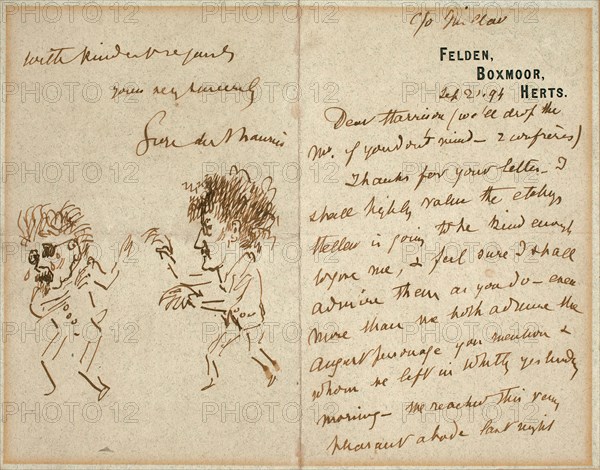 c/o
FELDEN,
BOXMOOR,
HERTS.
Sep 21. 94
Dear Harrison (we'll drop the
Mr. if you don't mind — 2 confreres)
Thanks for your letter — I
shall highly value the etchings
Helleu is going to be kind enough
to give me, & feel sure I shall
admire them as you do — even
more than we both admire the
august personage you mention &
whom we left in Whitby yesterday
morning — We reached this very
pleasant abode last night
with kindest regards
yours very sincerely
PHOTO 12